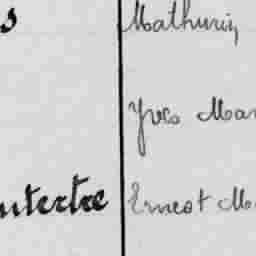 s Mathurin
Yves Mar
utertre Ernest M